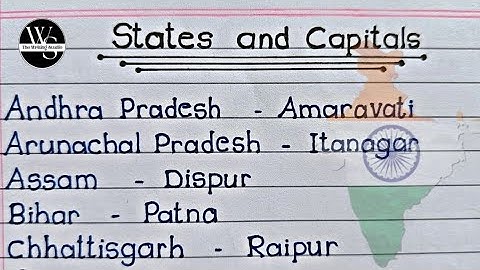 WS
The Writing Studio
States and Capitals
Andhra Pradesh - Amaravati
Arunachal Pradesh - Itanagar
Assam - Dispur
Bihar - Patna
Chhattisgarh - Raipur